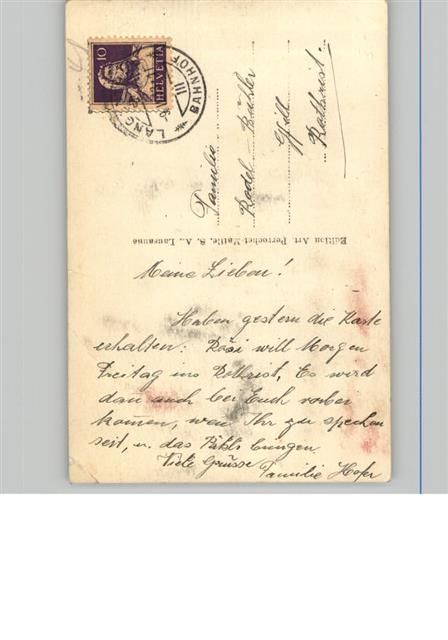 10
HELVETIA
BAHNHOF
III
LANG
Familie
Rödel - Buhler
Gfill
Rothrist.
Edition Art. Perrochet-Matile, S. A., Lausanne
Meine Lieben!
Haben gestern die Karte
erhalten. Rösi will Morgen
Freitag ins Rothrist, Es wird
dan auch bei Euch vorbei
kommen, wen Ihr zu sprechen
seit, u. das bringen.
Viele Grüsse
Familie Hofer